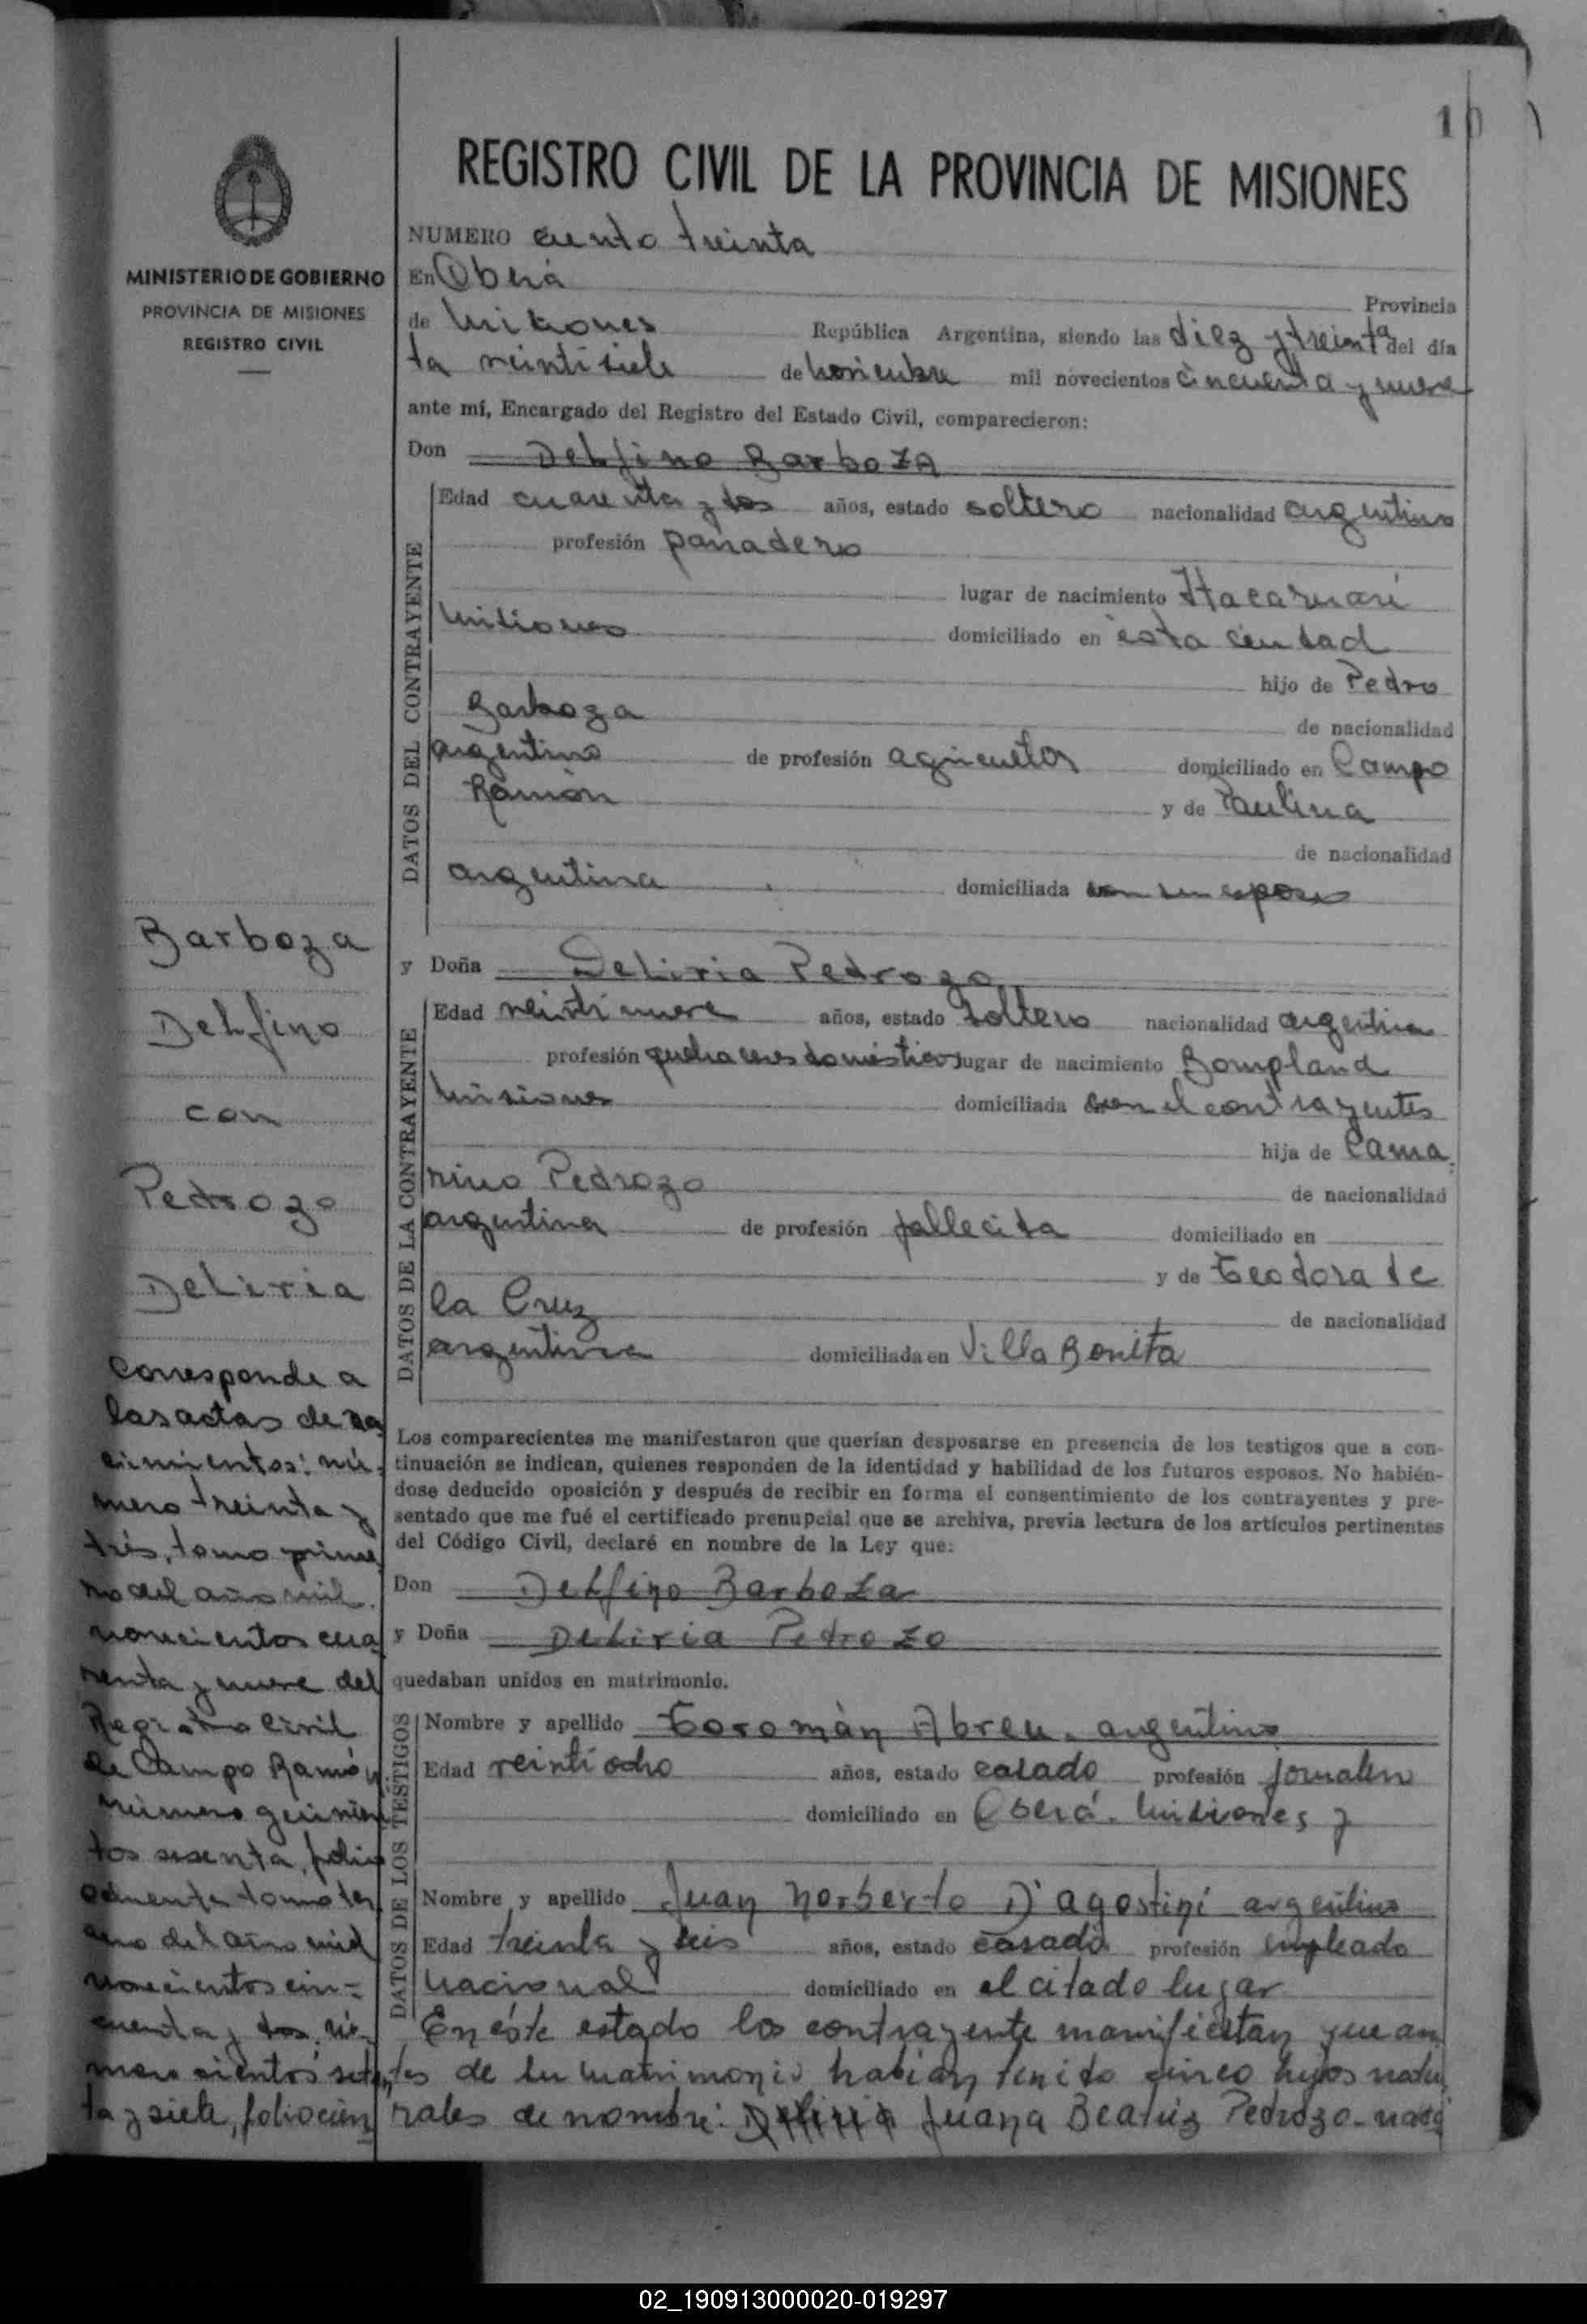 10
REGISTRO CIVIL DE LA PROVINCIA DE MISIONES
MINISTERIO DE GOBIERNO
PROVINCIA DE MISIONES
REGISTRO CIVIL
NUMERO ciento treinta
En Oberá Provincia
de Misiones República Argentina, siendo las diez y treinta del día
veintisiete de noviembre mil novecientos cincuenta y nueve
ante mí, Encargado del Registro del Estado Civil, comparecieron:
Don Delfino Barboza
DATOS DEL CONTRAYENTE
Edad cuarenta y dos años, estado soltero nacionalidad argentino
profesión panadero
lugar de nacimiento Itacaruaré
Misiones domiciliado en ésta ciudad
hijo de Pedro
Barboza de nacionalidad
argentino de profesión agricultor domiciliado en Campo
Ramón y de Paulina
de nacionalidad
argentina domiciliada con su esposo
y Doña Deliria Pedrozo
DATOS DE LA CONTRAYENTE
Edad veintinueve años, estado soltera nacionalidad argentina
profesión quehaceres domésticos lugar de nacimiento Bompland
Misiones domiciliada con el contrayentes
hija de Cama
rino Pedrozo de nacionalidad
argentina de profesión fallecida domiciliado en
y de Teodora de
la Cruz de nacionalidad
argentina domiciliada en Villa Bonita
Los comparecientes me manifestaron que querían desposarse en presencia de los testigos que a con-
tinuación se indican, quienes responden de la identidad y habilidad de los futuros esposos. No habién-
dose deducido oposición y después de recibir en forma el consentimiento de los contrayentes y pre-
sentado que me fué el certificado prenupcial que se archiva, previa lectura de los artículos pertinentes
del Código Civil, declaré en nombre de la Ley que:
Don Delfino Barboza
y Doña Deliria Pedrozo
quedaban unidos en matrimonio.
DATOS DE LOS TESTIGOS
Nombre y apellido Abreu. argentino
Edad veintiocho años, estado casado profesión jornalero
domiciliado en Oberá. Misiones y
Nombre y apellido Juan Norberto D'agostini argentino
Edad treinta y seis años, estado casado profesión empleado
nacional domiciliado en el citado lugar
En éste estado los contrayente manifiestan que an
tes de su matrimonio habían tenido cinco hijos natu
rales de nombre: Juana Beatriz Pedrozo-naci
Barboza
Delfino
con
Pedrozo
Deliria
Corresponde a
las actas de na
cimientos: nú-
mero treinta y
trés, tomo prime
ro del año mil
novecientos cua
renta y nueve del
Registro Civil
de Campo Ramón
número quinien
tos sesenta, folio
ochenta tomo ter
cero del año mil
novecientos cin-
cuenta y dos, nú-
mero cientos seten
ta y siete, folio cien
02_190913000020-019297